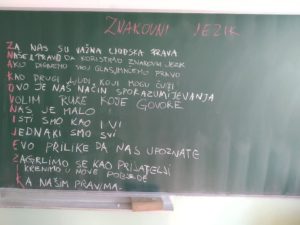 ZNAKOVNI JEZIK
ZA NAS SU VAŽNA LJUDSKA PRAVA
NAŠE JE PRAVO DA KORISTIMO ZNAKOVNI JEZIK
AKO DIGNEMO SVOJ GLAS, PRAVO
KAO DRUGI LJUDI, KOJI MOGU ČUTI
OVO JE NAŠ NAČIN SPORAZUMIJEVANJA
VOLIM RUKE KOJE GOVORE
NAS JE MALO
ISTI SMO KAO I VI
JEDNAKI SMO SVI
EVO PRILIKE DA NAS UPOZNATE
ZAGRLIMO SE KAO PRIJATELJI
I KRENIMO U NOVE POBJEDE
KA NAŠIM PRAVIMA